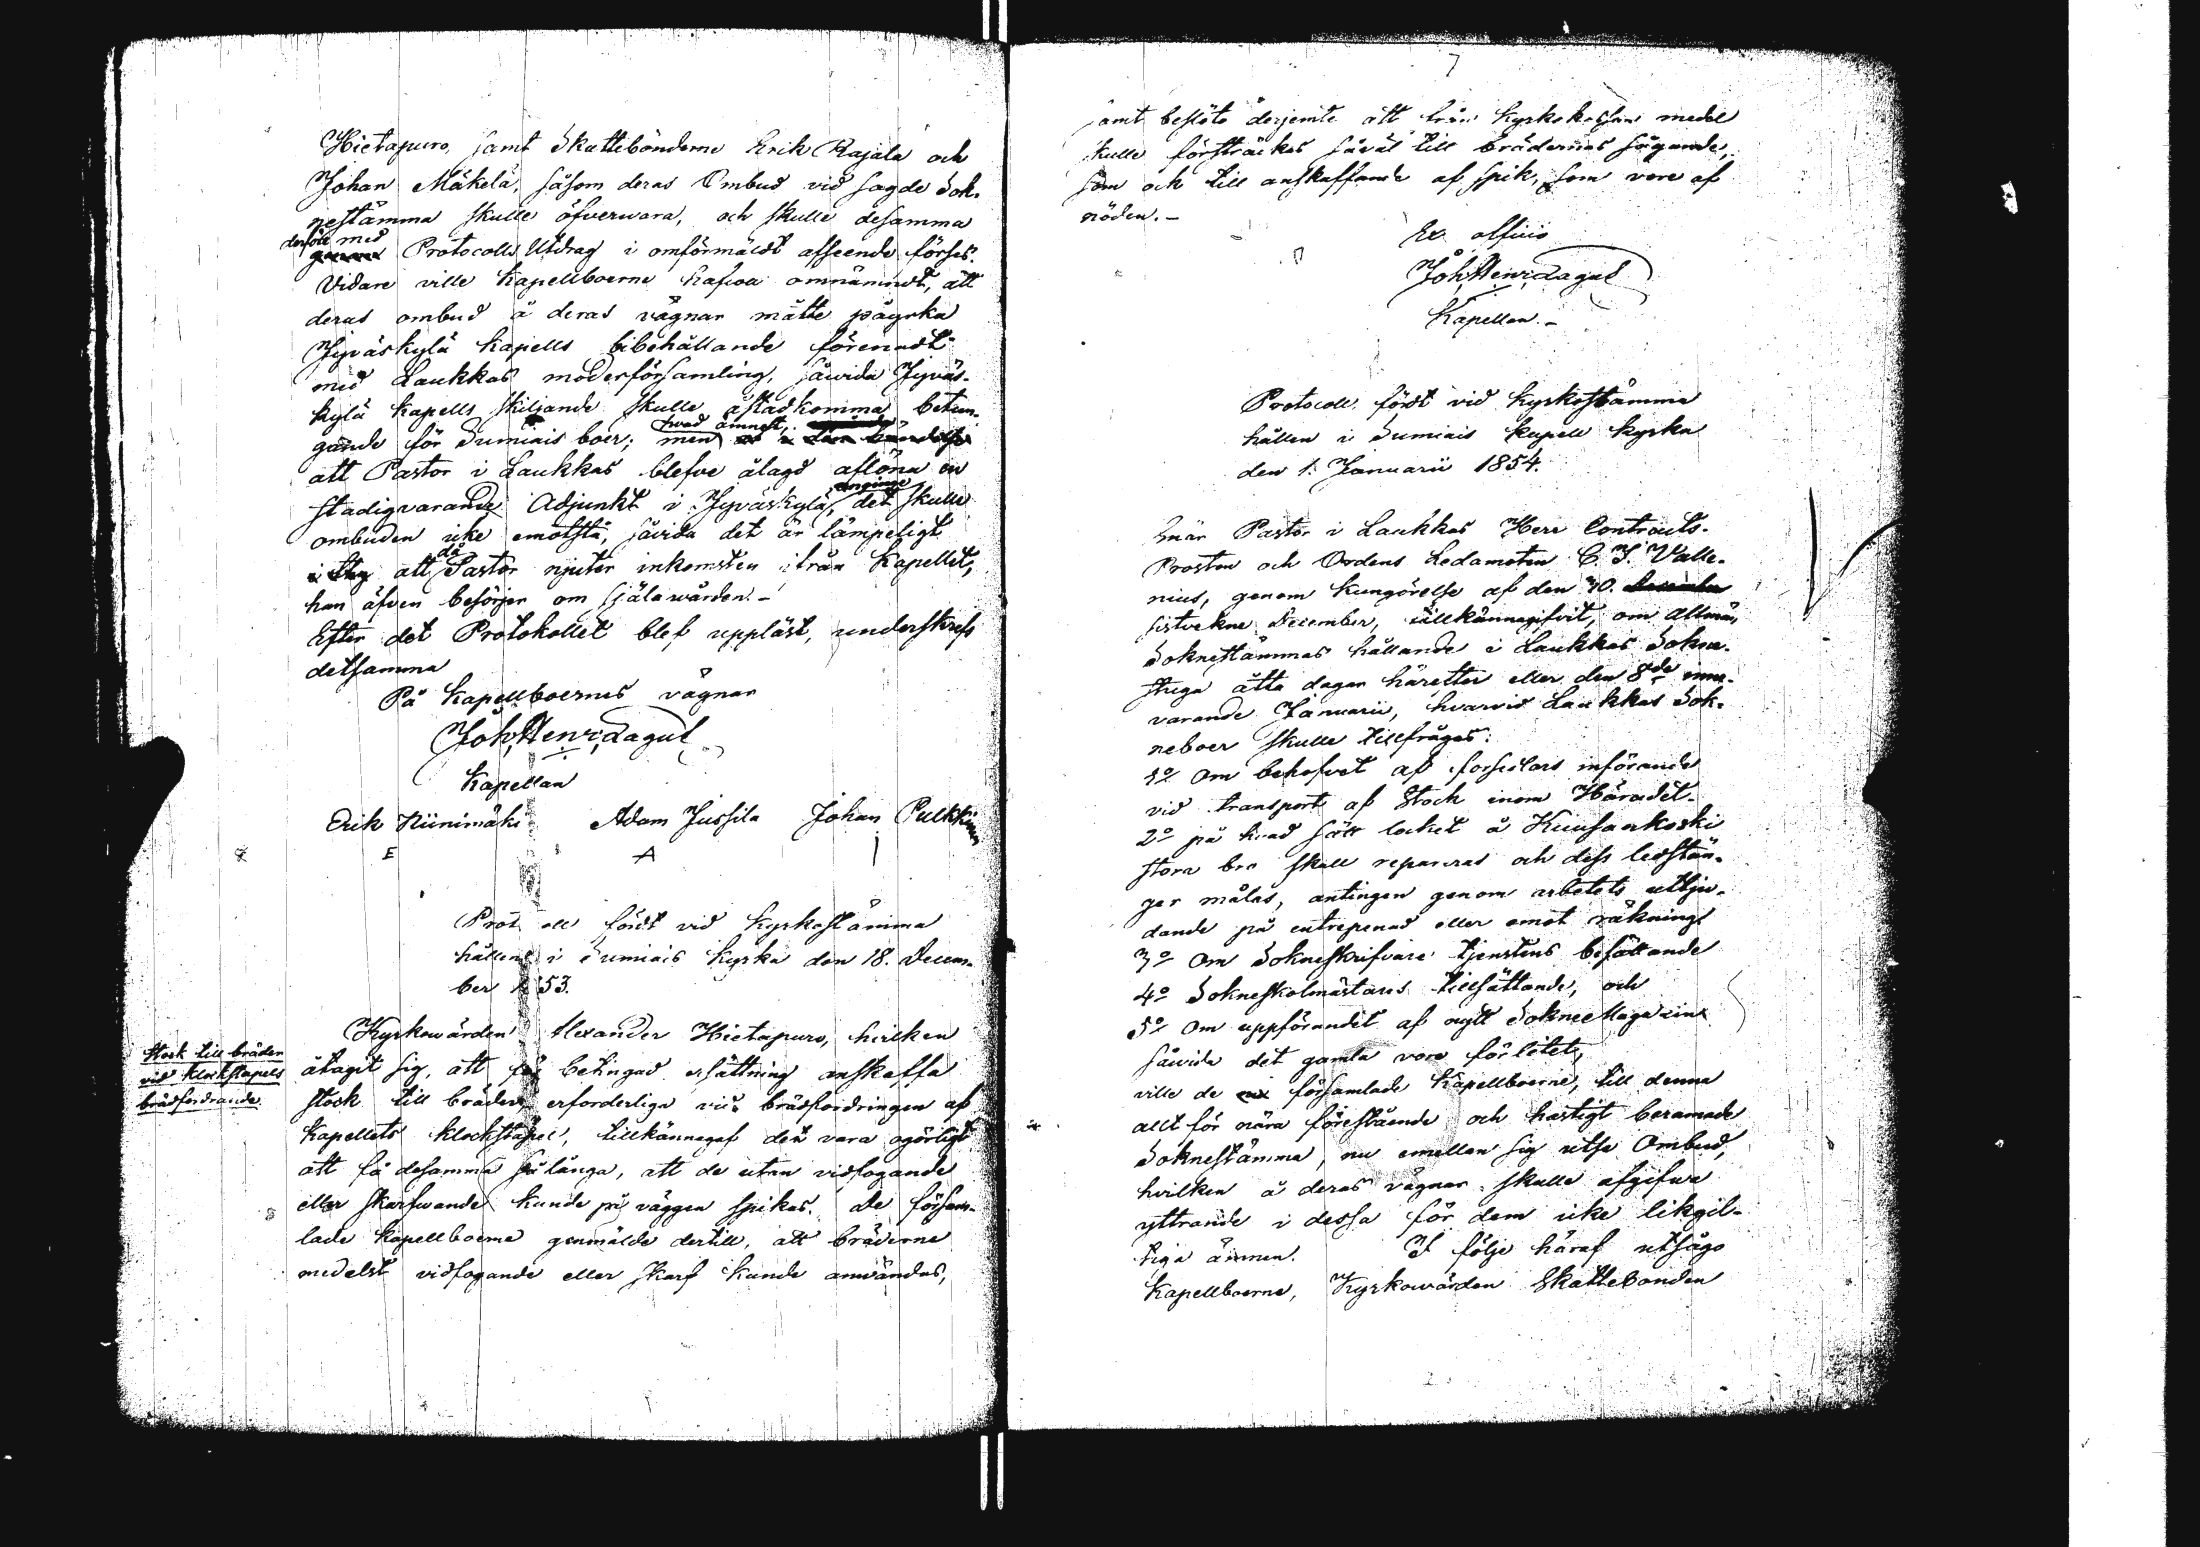 Hietapuro, samt Skattebönderne Erik Rajala och
Johan Mäkelä, såsom deras Ombud vid sagde Sok-
nestämma skulle öfverwara, och skulle desamma
derföre med
Protocolls Utdrag i omförmäldt afseende förses.
Vidare ville Kapellboerne hafwa omnämndt, att
deras ombud å deras vägnar måtte påyrka
Jyväskylä Kapells bibehållande förenadt
med Laukkas moderförsamling, såwida Jyväs-
kylä Kapells skiljande skulle åstadkomma betun-
hwad ämnest,
gande för Sumiais boer; men
att Pastor i Laukkas blefve ålagd aflöna en
anginge
stadigvarande Adjunkt i Jyväskylä, det skulle
ombuden icke emotstå, såvida det är lämpeligt
då
att Pastor njuter inkomsten ifrån Kapellet,
han äfven besörjer om själawården.-
Efter det Protokollet blef uppläst, underskrefs
detsamma
På Kapellboernes vägnar
Joh. Henr. Dagul
Kapellan
Erik Niinimäki Adam Jussila Johan Pulkkinen
E A |
Protocoll fördt vid Kyrkostämma
hållen i Sumiais Kyrka den 18. Decem-
ber 1853.
Stock till bräder
vid Klockstapels
brädfordrande.
Kyrkowärden Alexander Hietapuro, hvilken
åtagit sig, att för betingad ersättning anskaffa
stock till bräder erforderliga vid brädfordringen af
Kapellets klockstapel, tillkännagaf det vara ogörligt
att få desamma så långa, att de utan vidfogande
eller skarfwande kunde på väggen spikas. De försam-
lade Kapellboerne genmälde dertill, att bräderne
medelst vidfogande eller skarf kunde användas,
7
samt beslöto derjemte att från Kyrkokassans medel
skulle försträckas såväl till brädernas sågande,
som och till anskaffande af spik, som vore af
nöden.-
Ex officio
Joh. Henr. Dagul
Kapellan.-
Protocoll, fördt vid Kyrkostämma
hållen i Sumiais Kapell Kyrka
den 1. Januarii 1854.
Enär Pastor i Laukkas Herr Contracts-
Prosten och Ordens Ledamoten C. J. Valle-
nius, genom kungörelse af den 30.
sistvekne December, tillkännagifvit, om allmän
Soknestämmas hållande i Laukkas Sokne-
stuga åtta dagar härefter eller den 8de inne-
varande Januarii, hvarvid Laukkas Sok-
neboer skulle tillfrågas:
1o Om behofvet af forsedlars införande
vid transport af Stock inom Häradet.
2o på hvad sätt locket å Kuusankoski
stora bro skall repareras och dess ledstän-
ger målas, antingen genom arbetets utbju-
dande på entrepenad eller emot räkning
3o Om Sokneskrifvare tjenstens besättande
4o Sokneskolmästares tillsättande, och
5o Om uppförandet af nytt Sokne Magazin
såwida det gamla vore för litet,
ville de församlade Kapellboerne, till denna
allt för nära förestående och hastigt beramade
Soknestämma, nu emellan sig utse Ombud,
hvilken å deras vägnar skulle afgifwa
yttrande i dessa för dem icke likgil-
tiga ämnen. I följe häraf utsågo
Kapellboerne, Kyrkowärden Skattebonden